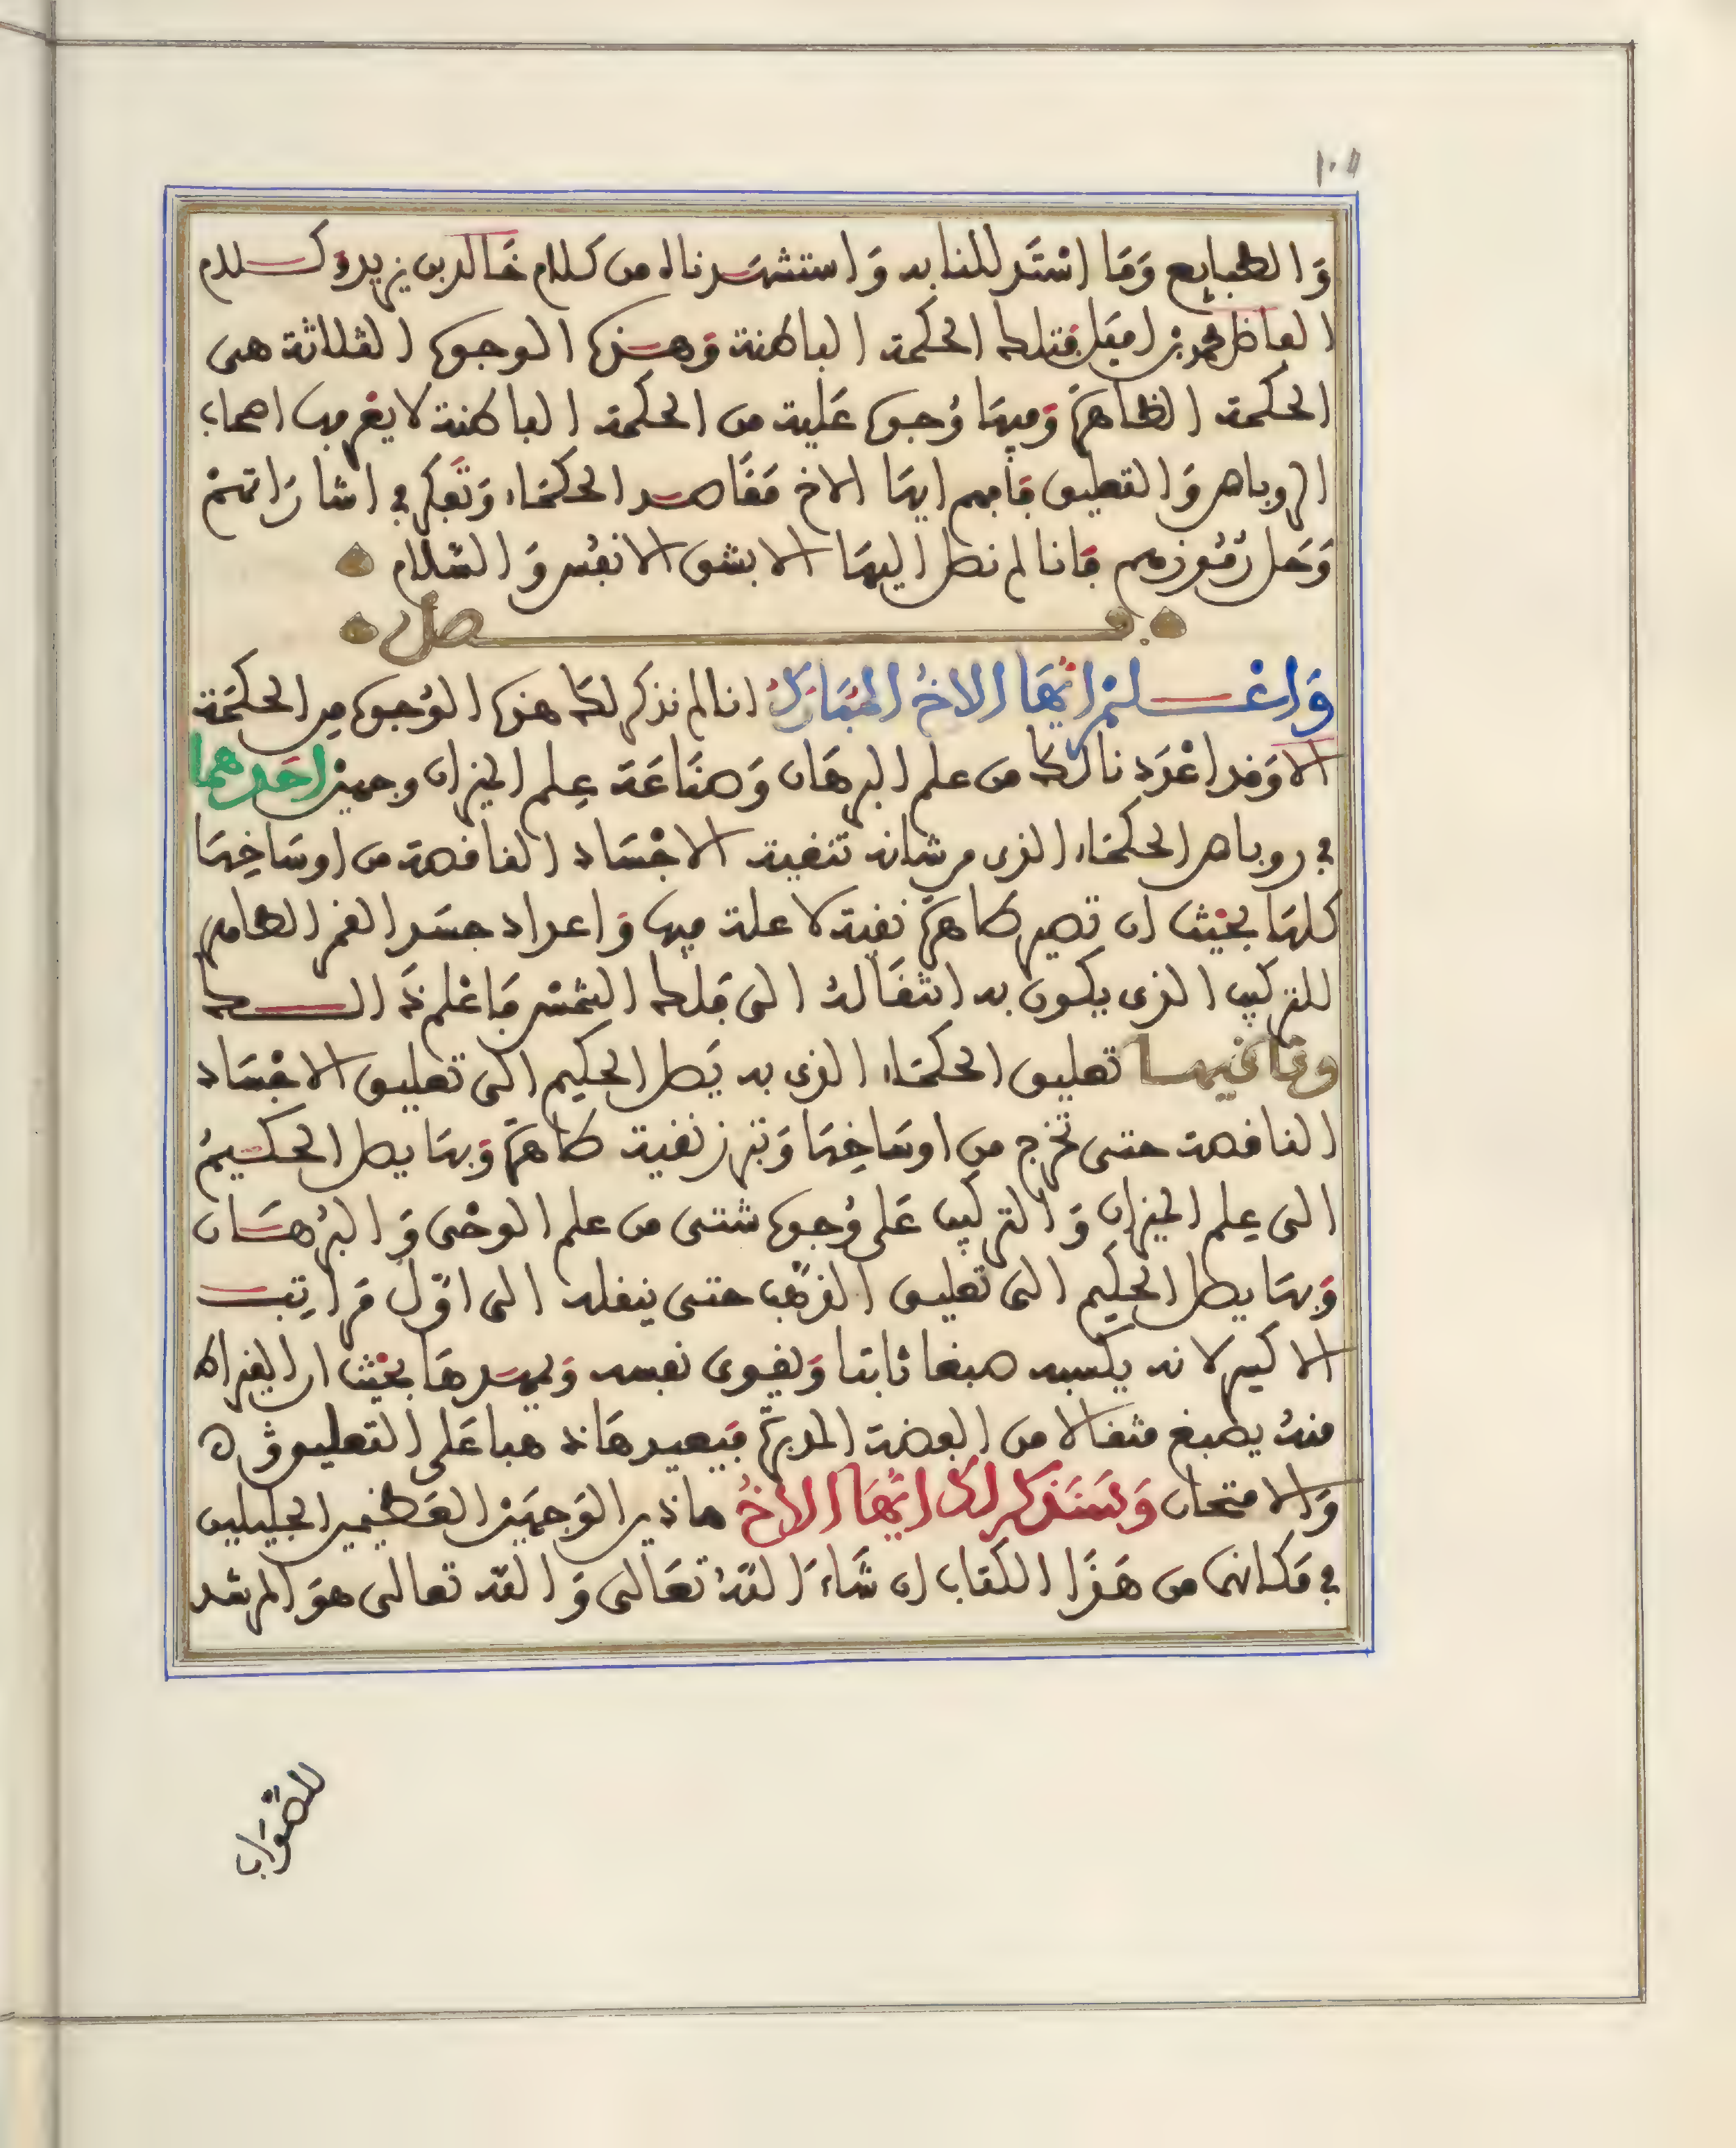 ١٠٥
وَالطبايع وَمَا اسْتَدللنا به وَاستشهدناه من كلام خَالد بن يزيد وكلام
الفاضل محمد بن اميل فتلك الحكمة الباطنة وَهذه الوجوه الثلاثة هى
الحكمة الظاهرة وَفيها وُجوه عَلية من الحكمة الباطنة لا يعرفها اصحاب
الروباص وَالتعليق فافهم ايها الاخ مَقَاصد الحكمَاء وَتَفكر في اشارَاتهمْ
وَحَل رُمُوزهم فَانا لم نصل اليهَا الا بشق الانفُس وَالسَّلام
فصل
وَاعْلمْ ايُّهَا الاخُ المُبَارَكُ انا لم نذكر لك هذه الوُجوه مِن الحكمَة
الا وَقد اعْدَدنا لك من علم البرهَان وَصنَاعَة عِلم الميزان وجهين احَدهما
في روباص الحكمَاء الذى من شانه تنقية الاجْسَاد الناقصة من اوسَاخِهَا
كلهَا بحَيْث ان تصير طاهرَة نقية لا علة فيها وَاعداد جسَد القمر الطاهر
للتركيب الذى يكون به انتقَالهُ الى فلك الشمْس فَاعْلم ذَالك
وثَانيهما تعليق الحكمَاء الذى به يَصل الحكيم الى تعليق الاجْسَاد
الناقصة حتى تخرج من اوسَاخِهَا وَتبرز نقية طاهرَة وَبهَا يصل الحكيمُ
الى عِلم الميزان وَالتركيب عَلى وُجوه شتى من علم الوحْى وَالبُرهَان
وَبهَا يصل الحكيم الى تعليق الذهَب حتى ينقله الى اوّل مَرَاتِب
الاكسير لانه يكسبه صبغا ثابتا وَيقوى نفسه وَيمهدهَا بحَيْث ان القيراط
منهُ يصبغ مثقالا من الفضة المدبرَة فيَصيرهَا ذهبا عَلى التعليق
وَالامتحان وَسَنَذكر لك ايُّهَا الاخُ هاذين الوَجهَيْن العَظيمين الجليلين
في مَكانهما من هَذَا الكتاب ان شَاءَ اللهُ تعَالى وَالله تعالى هوَ المرشد
للصَّوَاب